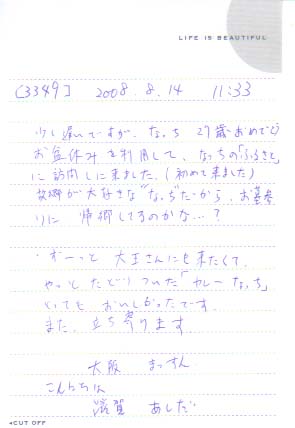 LIFE IS BEAUTIFUL
[3349] 2008.8.14 11:33
少し遅いですが、なっち 27歳おめでとう
お盆休みを利用して、なっちの「ふるさと」
に訪問しに来ました。(初めて来ました)
故郷が大好きな"なっち"だから、お墓参
りに 帰郷してるのかな…?
・ずーっと 大王さんにも来たくて、
やっと たどりついた「カレーなっち」
とっても おいしかったです。
また、立ち寄ります
大阪 まっすん
こんちちは
滋賀 あしだ
◂CUT OFF